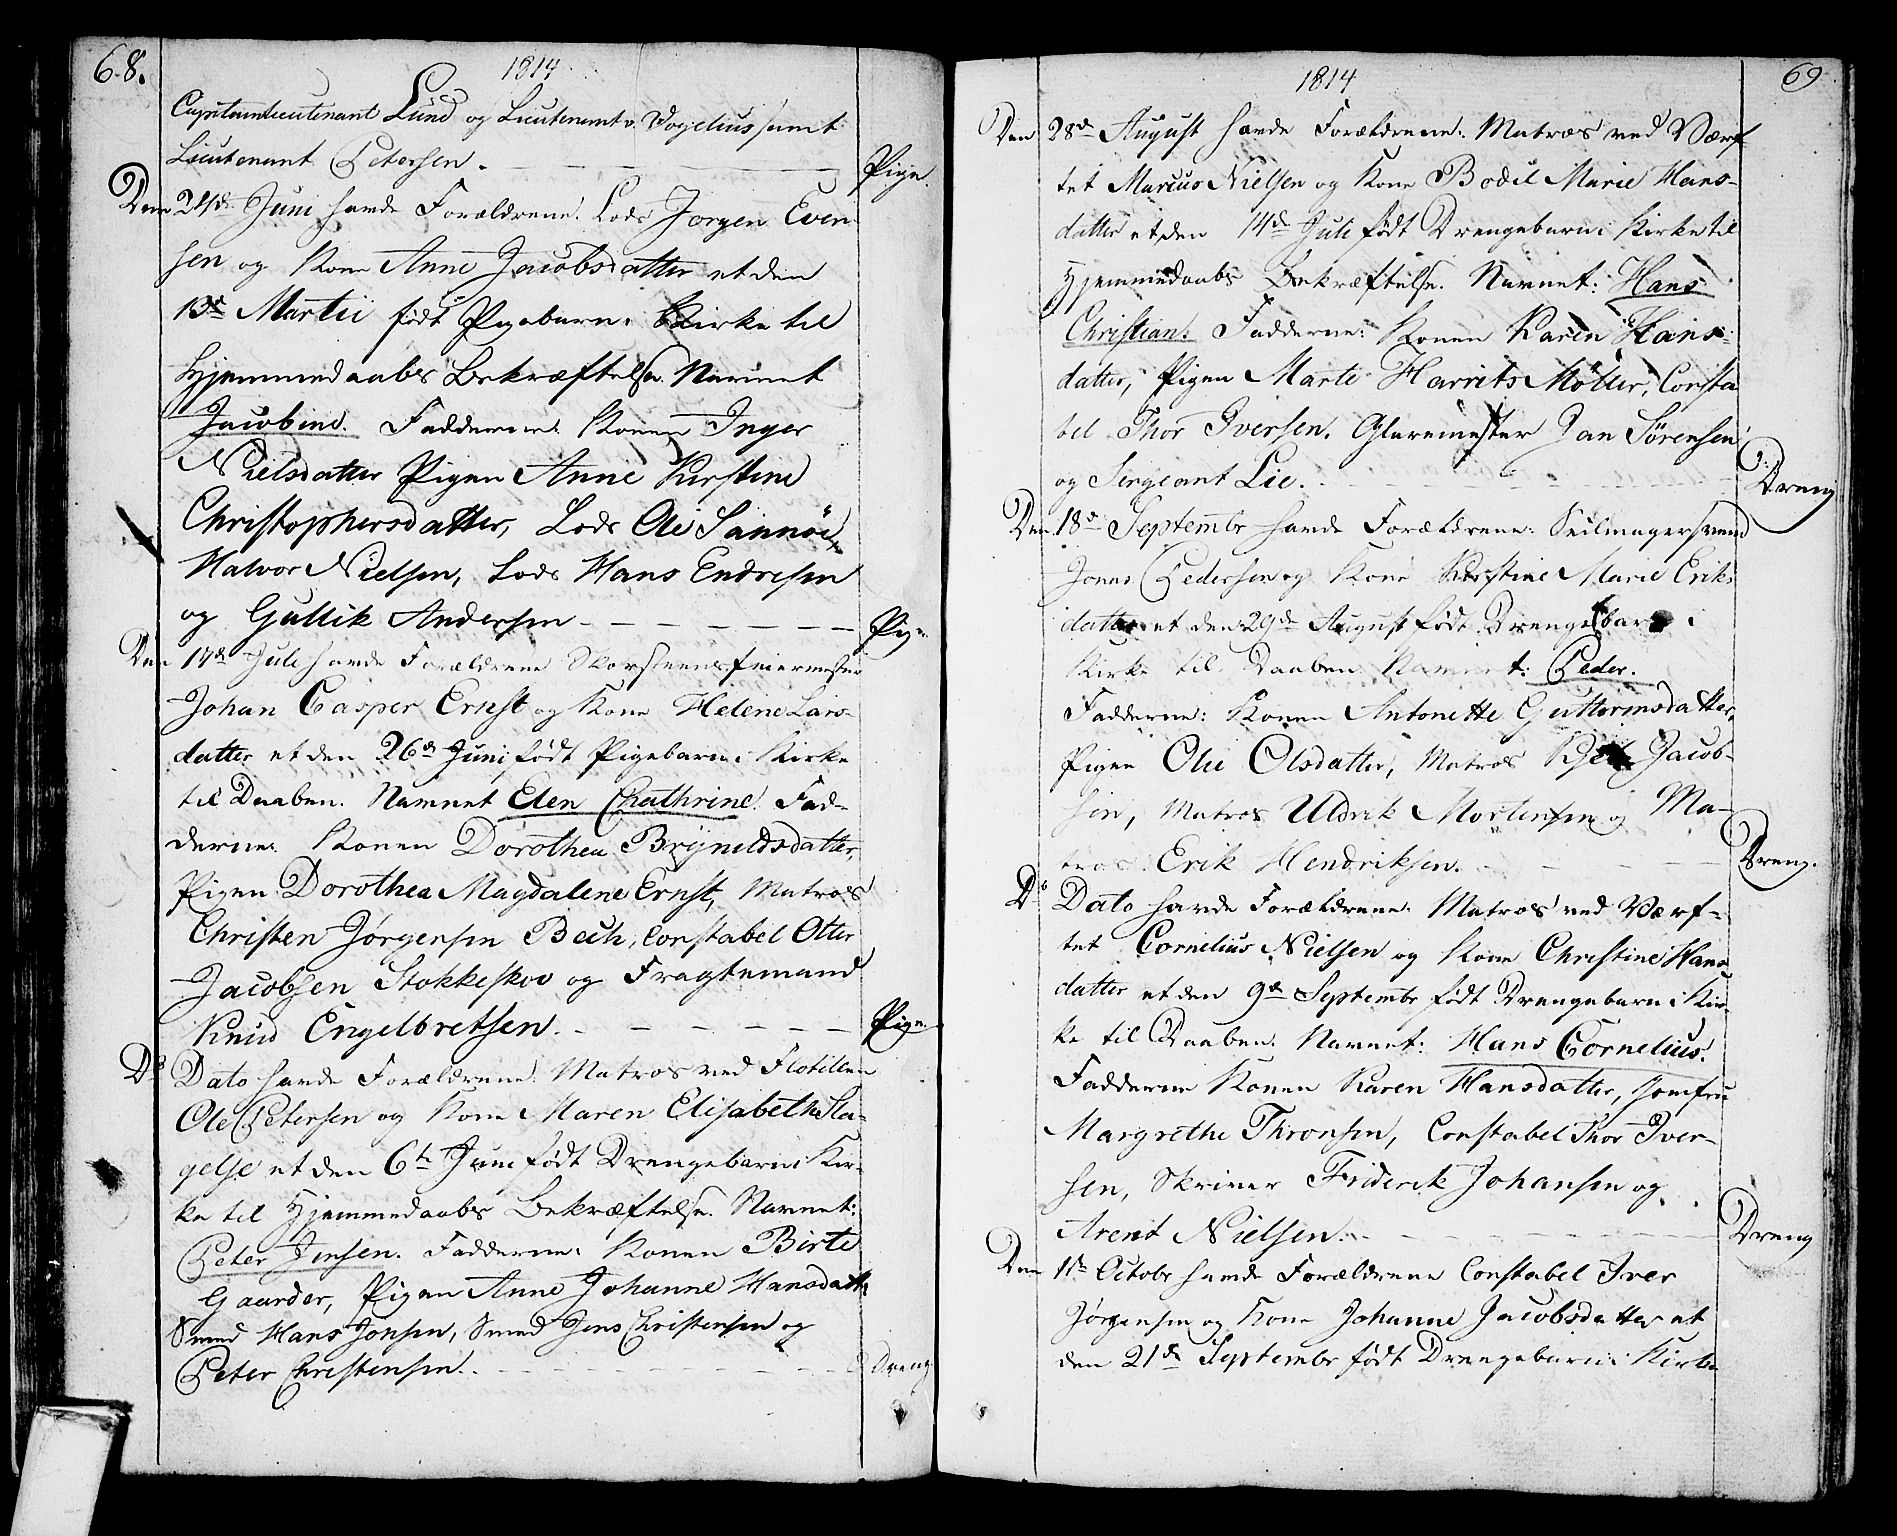 68.
1814
Capitainlieutenant Lund og Lieutenant v. Vogelius samt
Lieutenant Petersen. Pige.
Den 24de Juni havde Forældrene: Lods Jorgen Even-
sen og Kone Anne Jacobsdatter et den
13de Martii födt Pigebarn i Kirke til
Hjemmedaabs Bekræftelse. Navnet
Jacobine. Fadderne: Konen Inger
Nielsdatter Pigen Anne Kirstine
Christophersdatter, Lods Ole Sannöe,
Halvor Nielsen, Lods Hans Endresen
og Gullik Andersen - - - - - Pige
Den 17de Juli havde Forældrene Skorsteensfeiermester
Johan Casper Ernst og Kone Helene Lars-
datter et den 26de Juni födt Pigebarn i Kirke
til Daaben. Navnet Elen Chathrine. Fad-
derne: Konen Dorothea Brynildsdatter,
Pigen Dorothea Magdalene Ernst, Matros
Christen Jørgensen Bech, Constabel Otter
Jacobsen Stokkeskov og Fragtemand
Knud Engelbretsen. - - - - - Pige
Do Dato havde Forældrene: Matros ved Flotillen
Ole Petersen og Kone Maren Elisabeth Sla-
gelse et den 6te Juni födt Drengebarn i Kir-
ke til Hjemmedaabs Bekræftelse. Navnet:
Peter Jensen. Fadderne: Konen Birte
Gaarder, Pigen Anne Johanne Hansdatt:
Smed Hans Jonsen, Smed Jens Christensen og
Peter Christensen. - - - Dreng
69
1814
Den 28de August havde Forældrene: Matros ved Værf-
tet Marcus Nielsen og Kone Bodil Marie Hans-
datter et den 14de Juli födt Drengebarn i Kirke til
Hjemmedaabs Bekræftelse. Navnet: Hans
Christian. Fadderne: Konen Karen Hans-
datter, Pigen Marte Harrits Möller, Consta
bel Thor Iversen, Glarmester Jan Sörensen
og Sergeant Lie. - - - Dreng
Den 18de Septembr havde Forældrene: Seilmagersvend
Jonas Pedersen og Kone Kirstine Marie Eriks
datter et den 29de August födt Drengebarn i
Kirke til Daaben Navnet: Peder.
Fadderne: Konen Antonette Guttormsdatter,
Pigen Olie Olsdatter, Matros Jacob-
sen, Matros Uldrik Mortensen og Ma-
tros Erik Hendriksen. - - - Dreng.
Do Dato havde Forældrene: Matros ved Værf-
tet Cornelius Nielsen og Kone Christine Hans
datter et den 9de Septembr födt Drengebarn i Kir-
ke til Daaben. Navnet: Hans Cornelius.
Fadderne Konen Karen Hansdatter, Jomfru
Margrethe Thronsen, Constabel Thor Iver-
sen, Skriver Friderik Johansen og
Arent Nielsen. - - - Dreng
Den 1ste Octobr havde Forældrene Constabel Iver
Jørgensen og Kone Johanne Jacobsdatter et
den 21de Septembr födt Drengebarn i Kirke